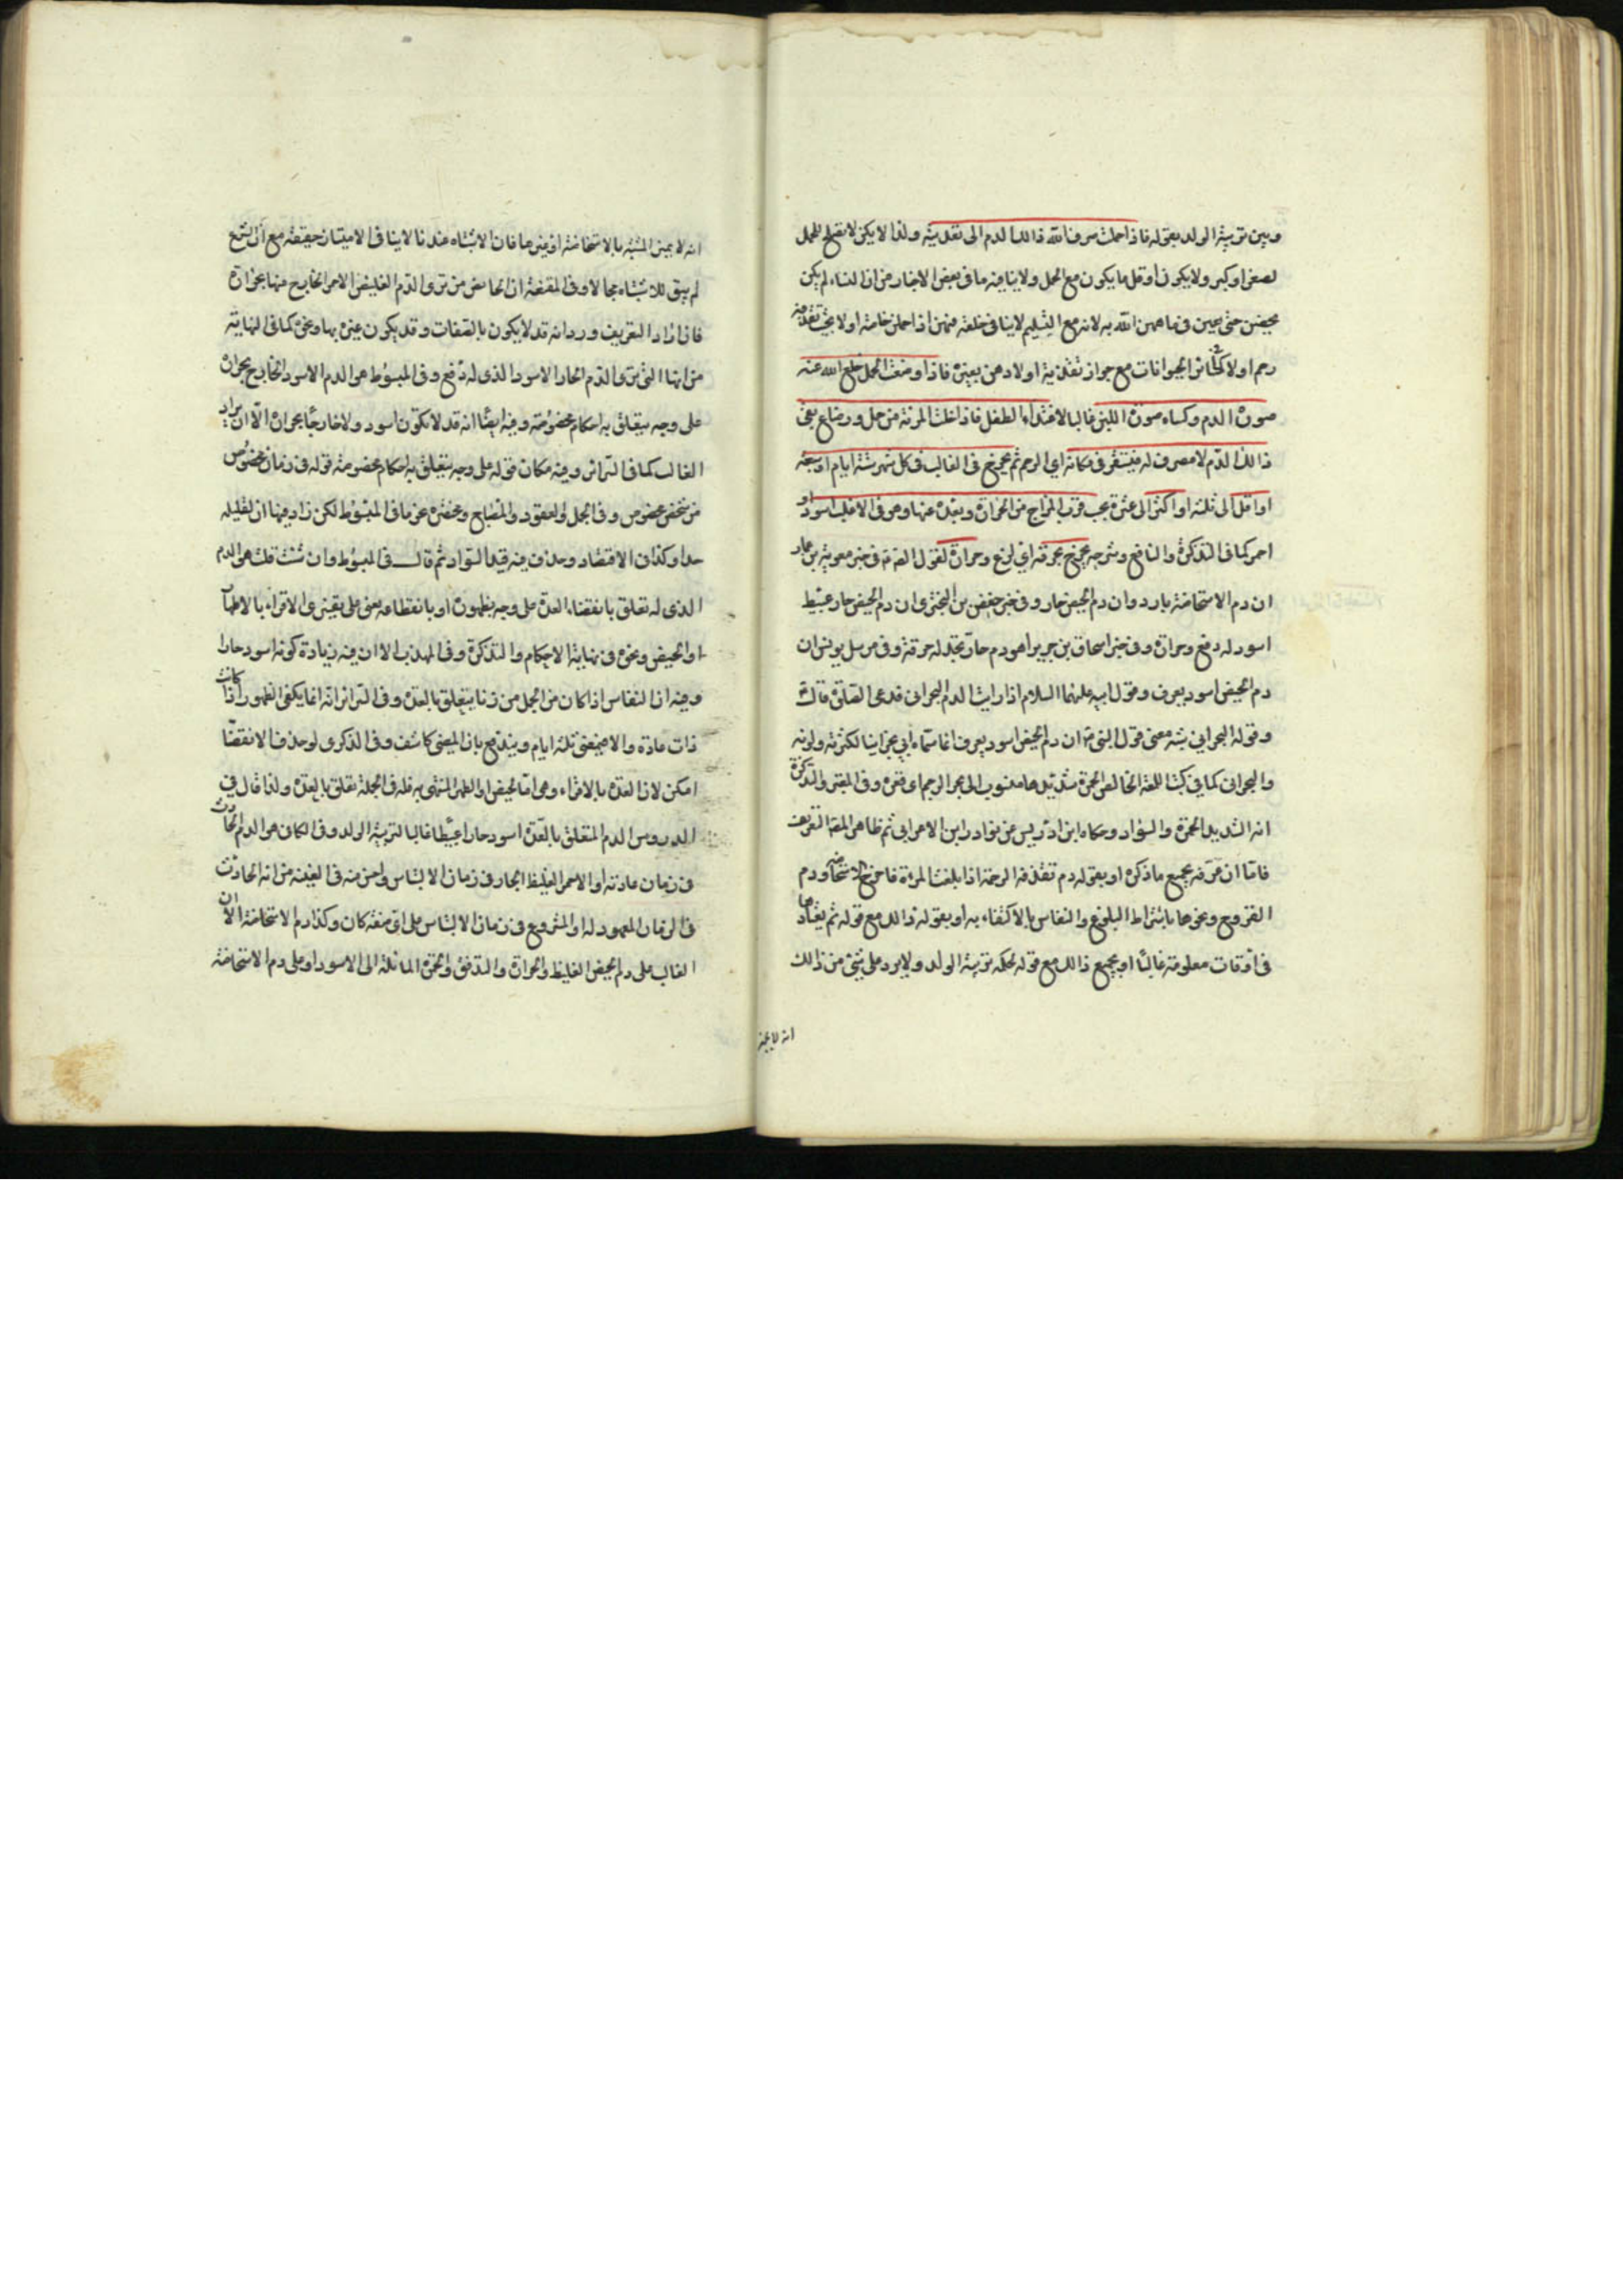 وبين تربية الولد بقوله فاذا حملت صرف الله ذلك الدم الى تغذيته ولذا لا يكن لا تقبل للحمل
لصغر او كبر ولا يكون او قل ما يكون مع الحمل ولا ينافيه ما في بعض الاخبار من ان النساء لم يكن
يحضن حتى فيما الله به لانه مع التسليم لا ينافي خلقه فيهن اذا حملن خاصة او لا يجب تغذية
رحم اولا كسائر الحيوانات مع جواز تغذية اولادهن بغيره فاذا وضعت الحمل خلع الله عنه
صورة الدم وكساه صورة اللبن غالبا لاغتذاء الطفل فاذا خلت المرئة من حمل ورضاع بقى
ذلك الدم لا مصرف له فيستقر في مكانه اي الرحم ثم يخرج في الغالب في كل شهر ستة ايام او سبعة
او اقل الى ثلثة او اكثر الى عشرة بحسب قرب المزاج من الحرارة وبعده عنها وهو في الاغلب اسود او
احمر كما في التذكرة والنافع وشرحه يخرج بحرقة اي لذع وحرارة لقول الصادق في خبر معوية بن عمار
ان دم الاستحاضة بارد وان دم الحيض حار وفي خبر حفص بن البختري ان دم الحيض حار عبيط
اسود له دفع وحرارة وفي خبر اسحاق بن جرير هو دم حار تجد له حرقة وفي مرسل يونس ان
دم الحيض اسود يعرف وقول ابيه عليهما السلام اذا رايت الدم البحراني فدعي الصلوة قال
وقوله البحراني شبه معنى قول النبي ص ان دم الحيض اسود يعرف انما سماه ابي بحرانيا لكثرته ولونه
والبحراني كما في كتب اللغة الخالص الحمرة شديدها منسوب الى بحر الرحم اي قعره وفي المعتبر والتذكرة
انه الشديد الحمرة والسواد وحكاه ابن ادريس عن نوادر ابن الاعرابي ثم ظاهر المصنف التعريف
فاما ان عرفه بجميع ما ذكره او بقوله دم تقذفه الرحم اذا بلغت المرءة فاخرج الاستحاضة ودم
القروح ونحوها باشتراط البلوغ والنفاس بالاكتفاء به او بقوله ذلك مع قوله ثم تعتادها
في اوقات معلومة غالبا او بجميع ذلك مع قوله لحكمة تربية الولد ولا يرد على شيء من ذلك
انه لا يميز
انه لا يميز المشتبه بالاستحاضة او غيرها فان الاشتباه عندنا لا ينافي الامتياز حقيقة مع ان الشرع
لم يبق للاشتباه مجالا وفي المقنعة ان الحائض من ترى الدم الغليظ الاحمر الخارج منها بحرارة
فان اراد التعريف ورد انه قد لا يكون بالصفات وقد يكون غيره بها ونحوه كما في النهاية
من انها التي ترى الدم الحار الاسود الذي له دفع وفي المبسوط هو الدم الاسود الخارج بحرارة
على وجه يتعلق به احكام مخصوصة وفيه ايضا انه قد لا يكون اسود ولا خارجا بحرارة الا ان يراد
الغالب كما في السرائر وفيه مكان قوله على وجه يتعلق به احكام مخصوصة قوله في زمان مخصوص
من شخص مخصوص وفي الجمل والعقود والمصباح ومختصره عن ما في المبسوط لكن زاد فيها ان لقليله
حدا وكذا في الاقتصاد وحذف فيه قيد السواد ثم قال في المبسوط وان شئت قلت هو الدم
الذي له تعلق بانقضاء العدة على وجه بظهوره او بانقطاعه يعني على تفسيري الاقراء بالاطهار
او الحيض ونحوه في نهاية الاحكام والتذكرة وفي المهذب الا ان فيه زيادة كونه اسود حارا
وفيه ان النفاس اذا كان من الحمل من زنا يتعلق بالعدة وفي السرائر انه انما يكفي الظهور اذا كانت
ذات عادة والا فبمضى ثلثة ايام ويندفع بان المضي كاشف وفي الذكرى لو حذف الانقضاء
امكن لان العدة بالاقراء وهي اما الحيض او الطهر المنتهى به فله في الجملة تعلق بالعدة ولذا قال في
الدروس الدم المتعلق بالعدة اسود حارا عبيطا غالبا لتربية الولد وفي الكافي هو الدم الحادث
في زمان عادته او الاحمر الغليظ الحار في زمان الالتباس واحسن منه في الغنية من انه الحادث
في الزمان المعهود له او المشروع في زمان الالتباس على اي صفة كان وكذا دم الاستحاضة الا ان
الغالب على دم الحيض الغليظ والحرارة والتدفق والحمرة المائلة الى الاسود او على دم الاستحاضة